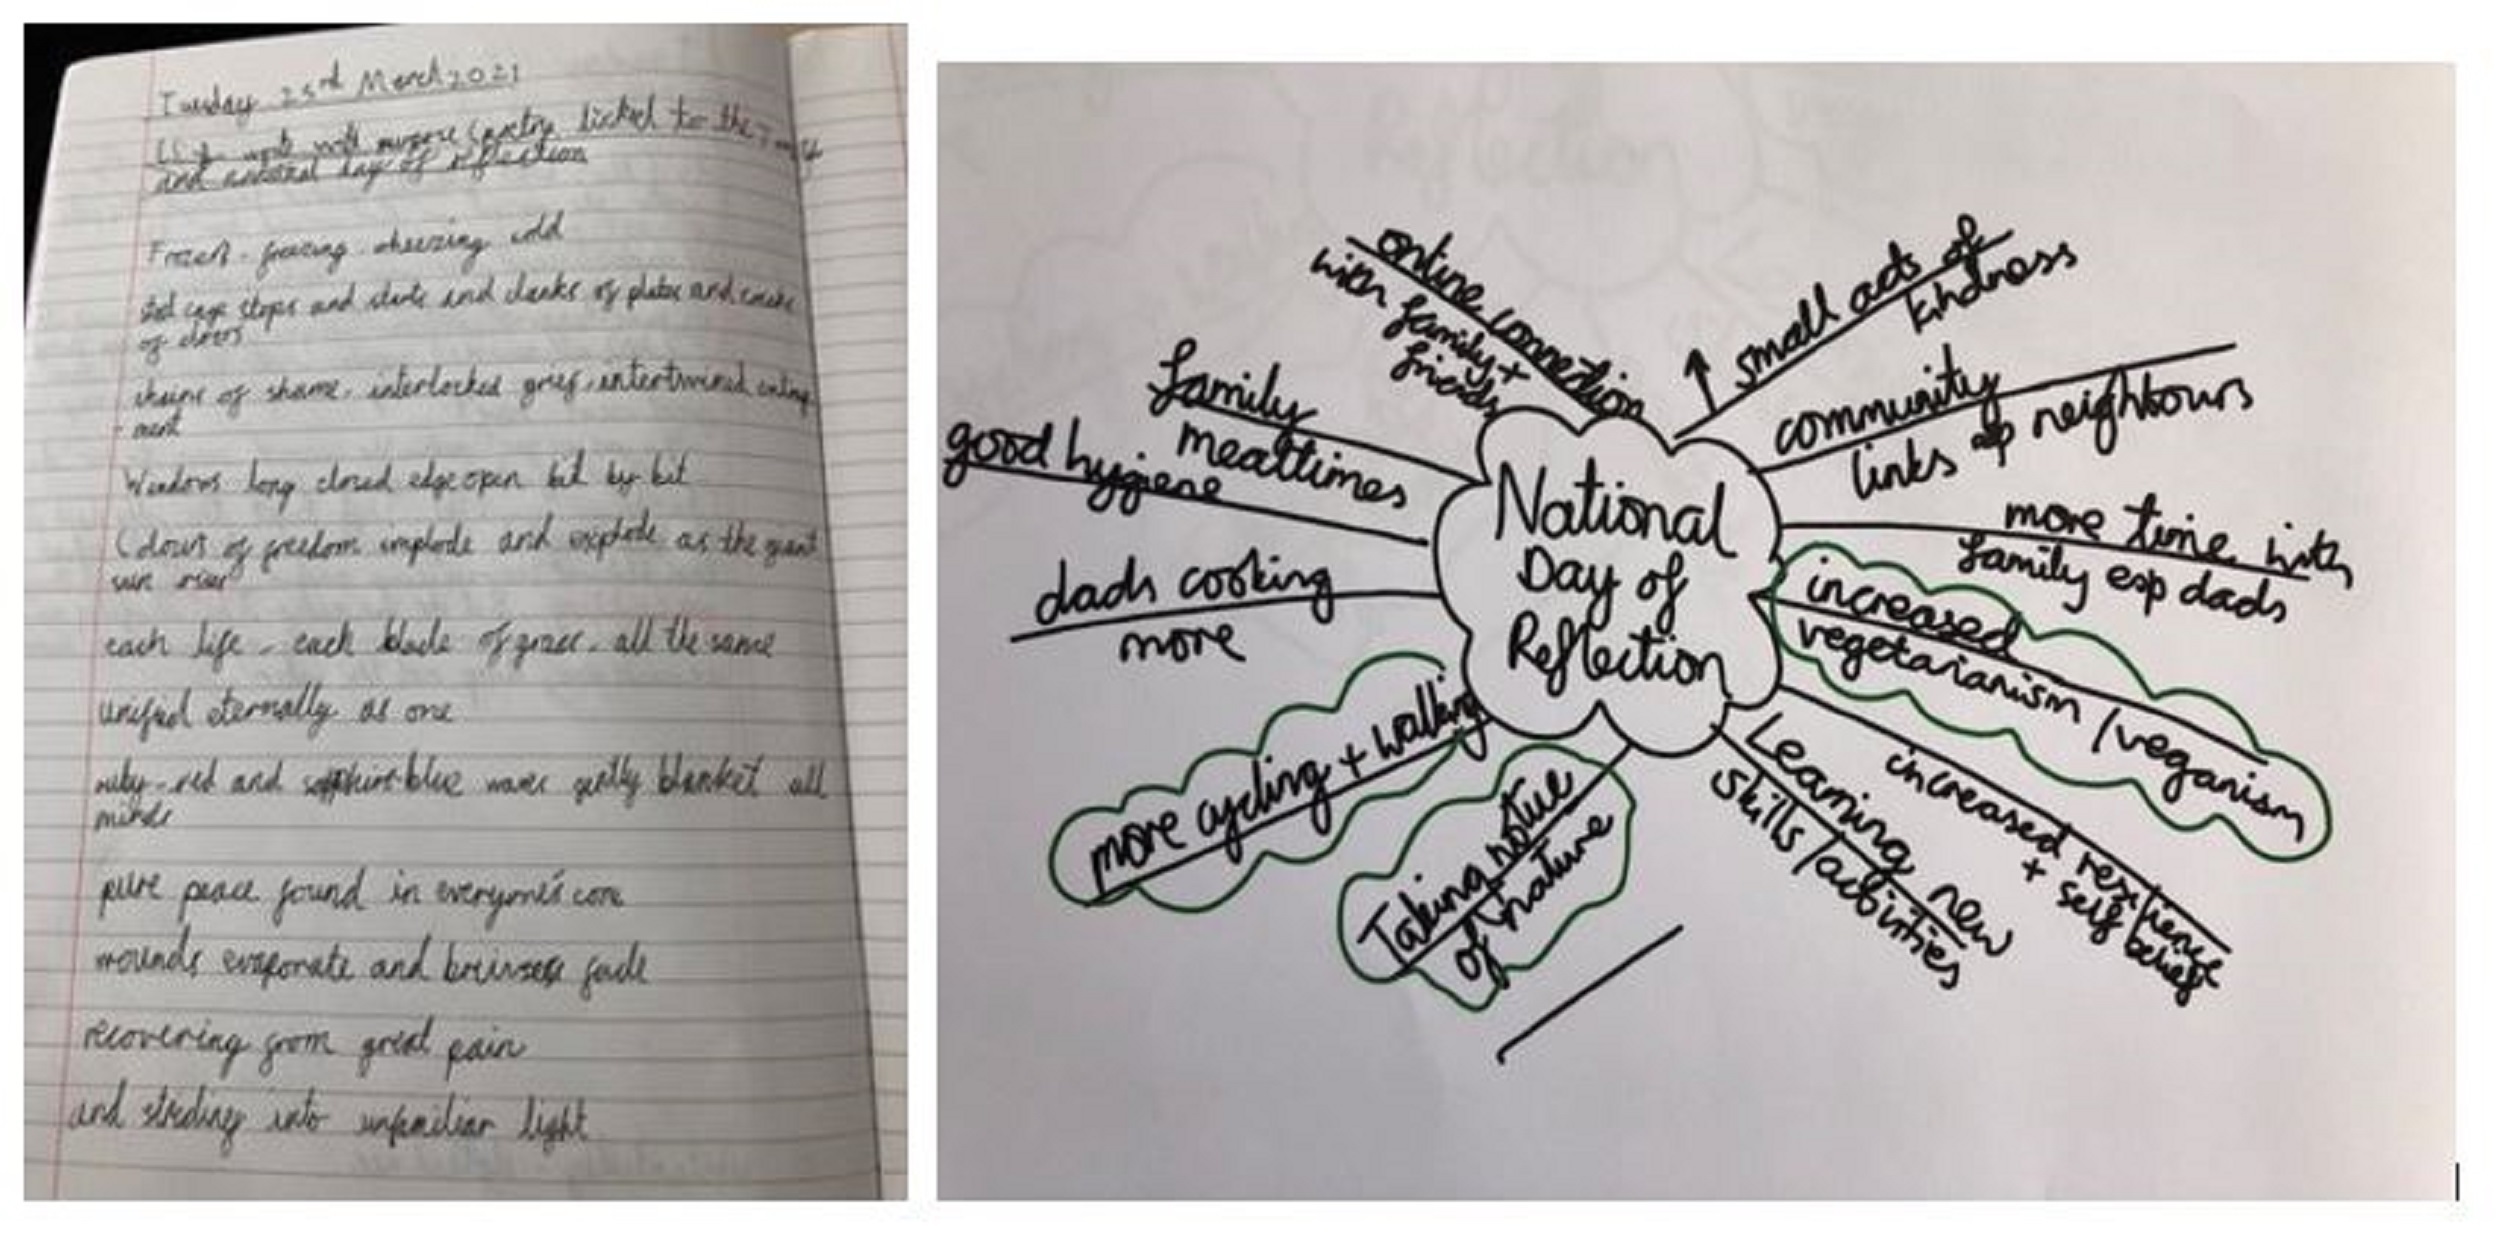 Tuesday 23rd March 2021
to write with purpose (poetry linked to the
and national day of reflection
Frozen - freezing wheezing cold
cage stops and starts and clanks of plates and
of doors
chains of shame, interlocked grief, intertwined
ment
Windows long closed edge open bit by bit
Colours of freedom implode and explode as the giant
sun rises
each life - each blade of grass - all the same
unified eternally as one
ruby-red and sapphire-blue waves gently blanket all
minds
pure peace found in everyone's core
wounds evaporate and bruises fade
recovering from great pain
and striding into unfamiliar light
National
Day of
Reflection
online connection
with family +
friends
small acts of
kindness
community
links neighbours
more time with
family esp dads
increased
vegetarianism / veganism
increased resilience
+ self belief
Learning new
skills / activities
Taking notice
of nature
more cycling + walking
dads cooking
more
good hygiene
family
mealtimes